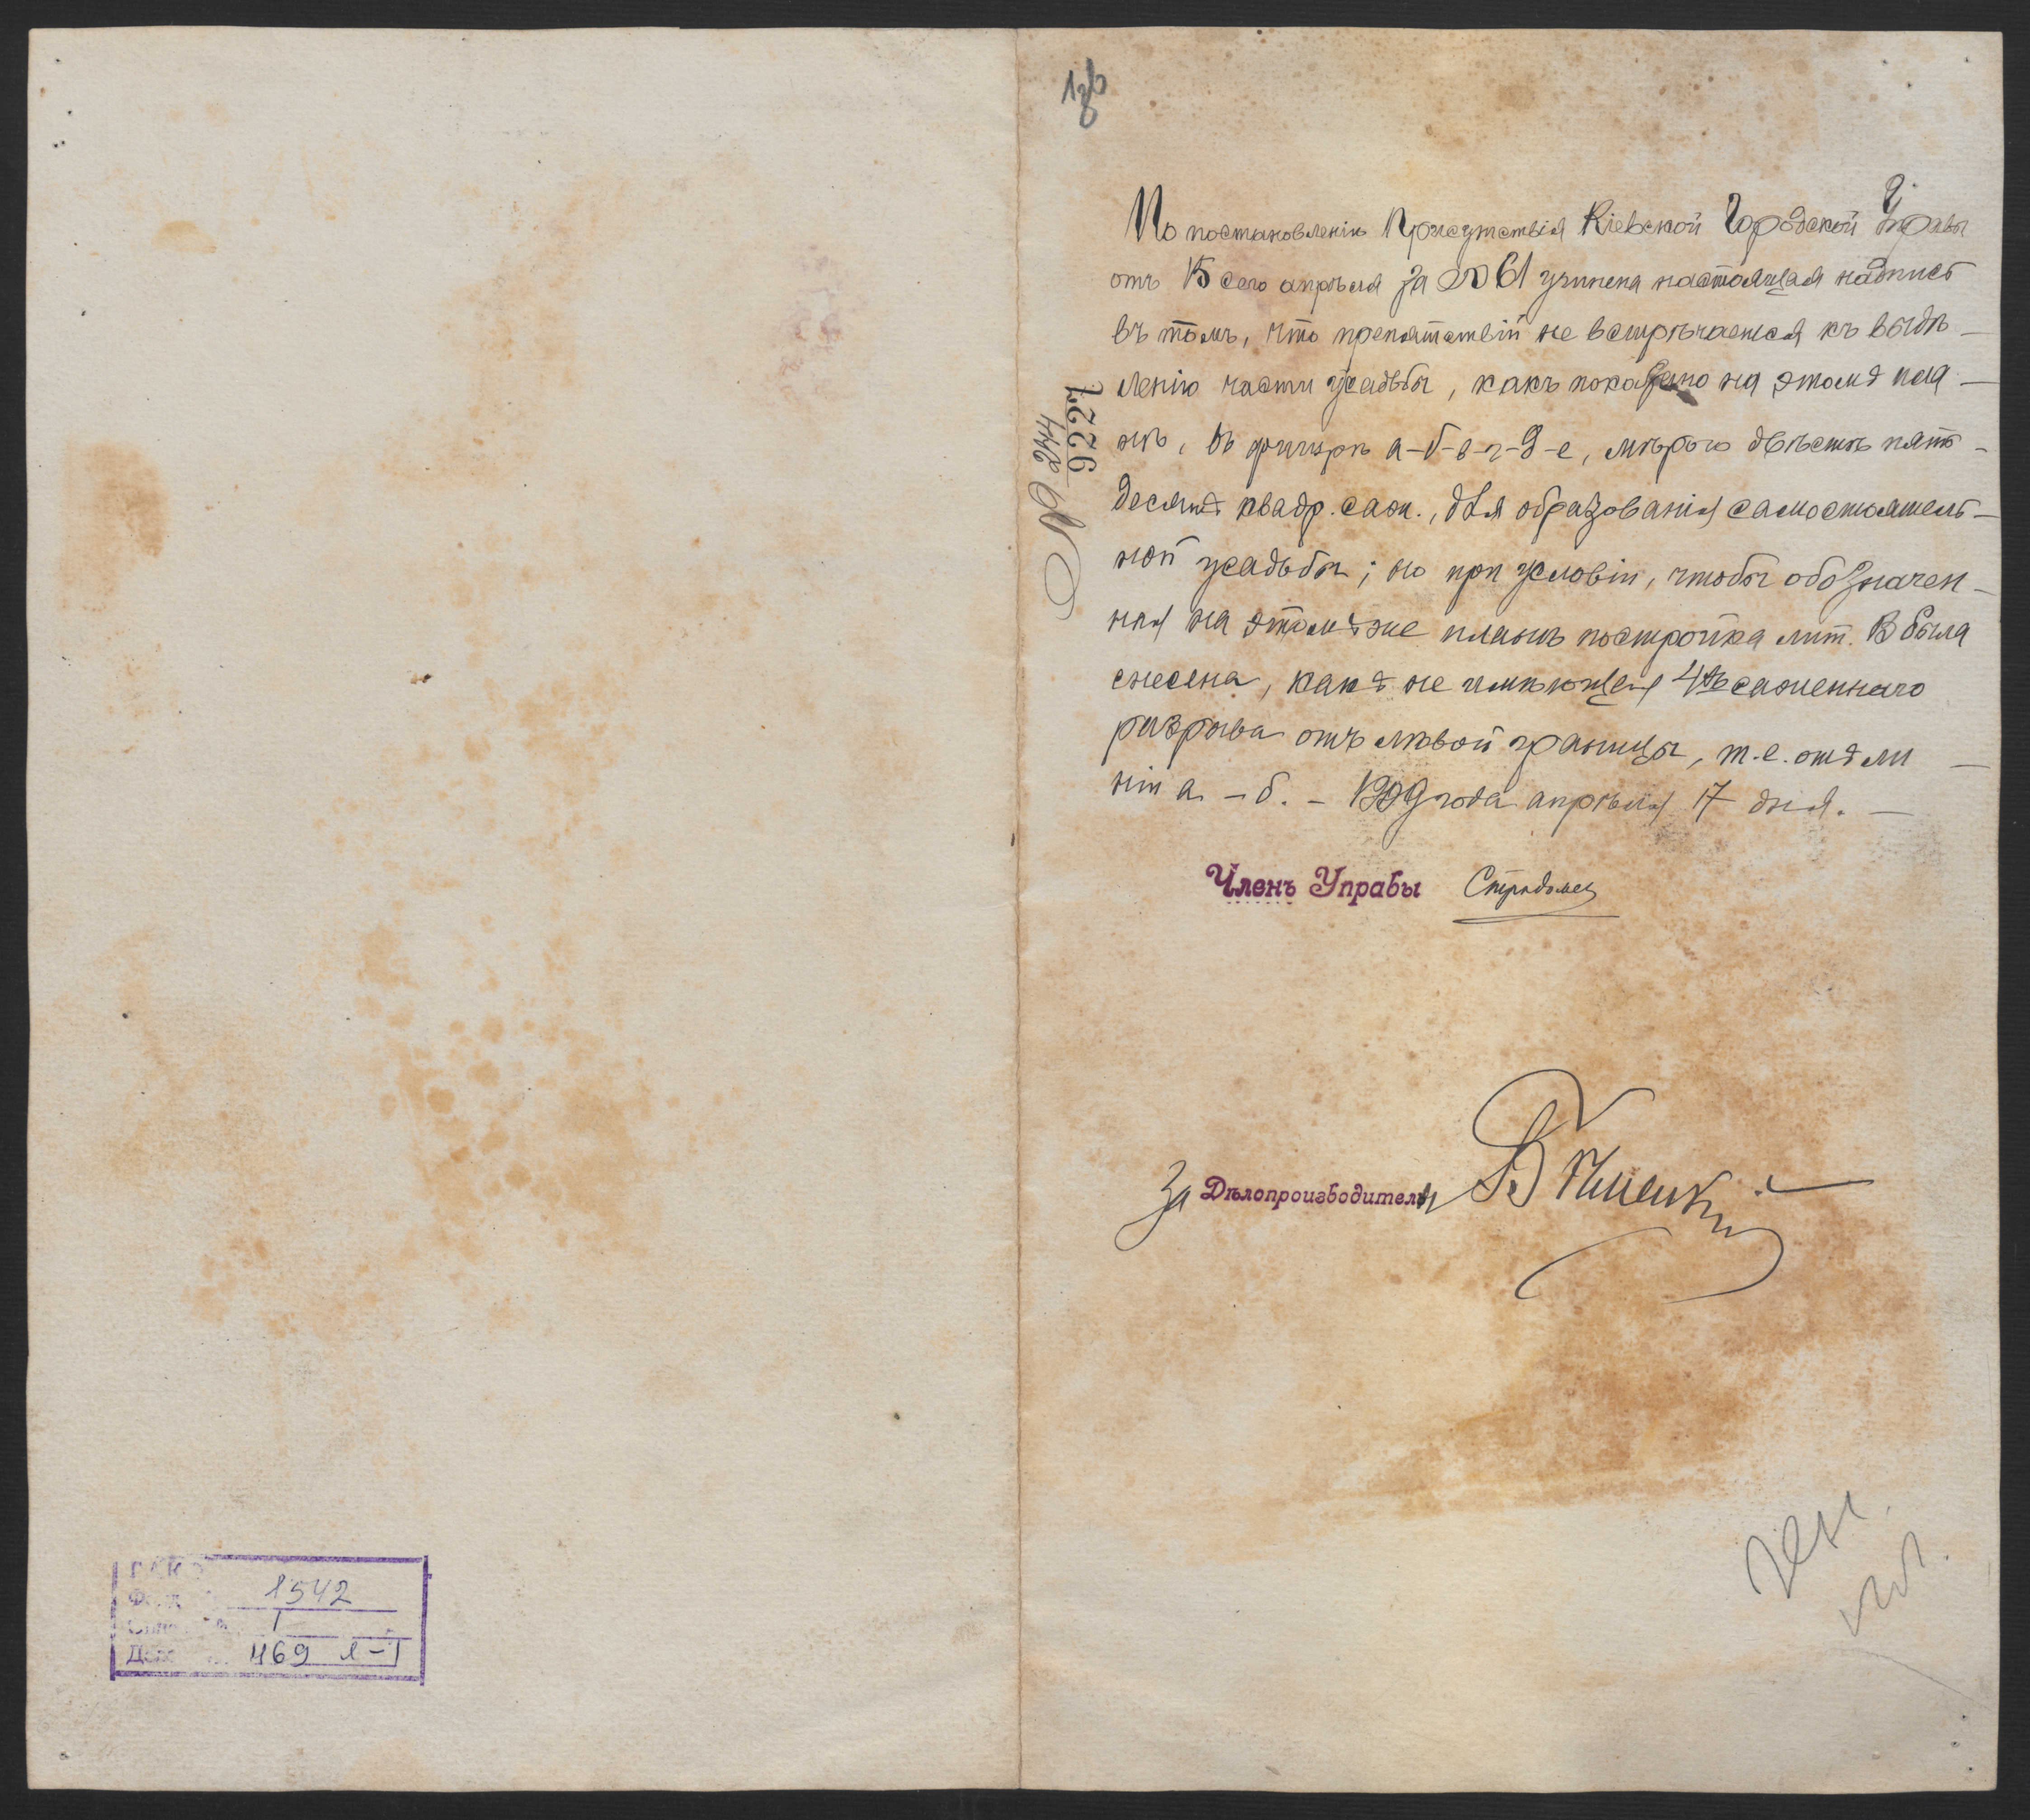 ГАКО
Фонд 1542
Опис 1
Дело 469 л-1
По постановленію Присутствія Кіевской Городской Управы
отъ 15 сего апрѣля за № 61 учинена настоящая надпись
въ томъ, что препятствій не встрѣчается къ выдѣ-
ленію части усадьбы, какъ показано на этомъ пла-
нѣ, въ фигурѣ а-б-в-г-д-е, мѣрою двѣсти пять-
десятъ квадр. саж., для образованія самостоятель-
ной усадьбы; но при условіи, чтобы обозначен-
ная на этомъ же планѣ постройка лит. В была
снесена, какъ не имѣющая 4хъ саженнаго
разрыва отъ лѣвой границы, т.е. отъ ли-
ніи а-б. - 1909 года апрѣля 17 дня. -
Членъ Управы
За Дѣлопроизводителя
№ 2441
9227